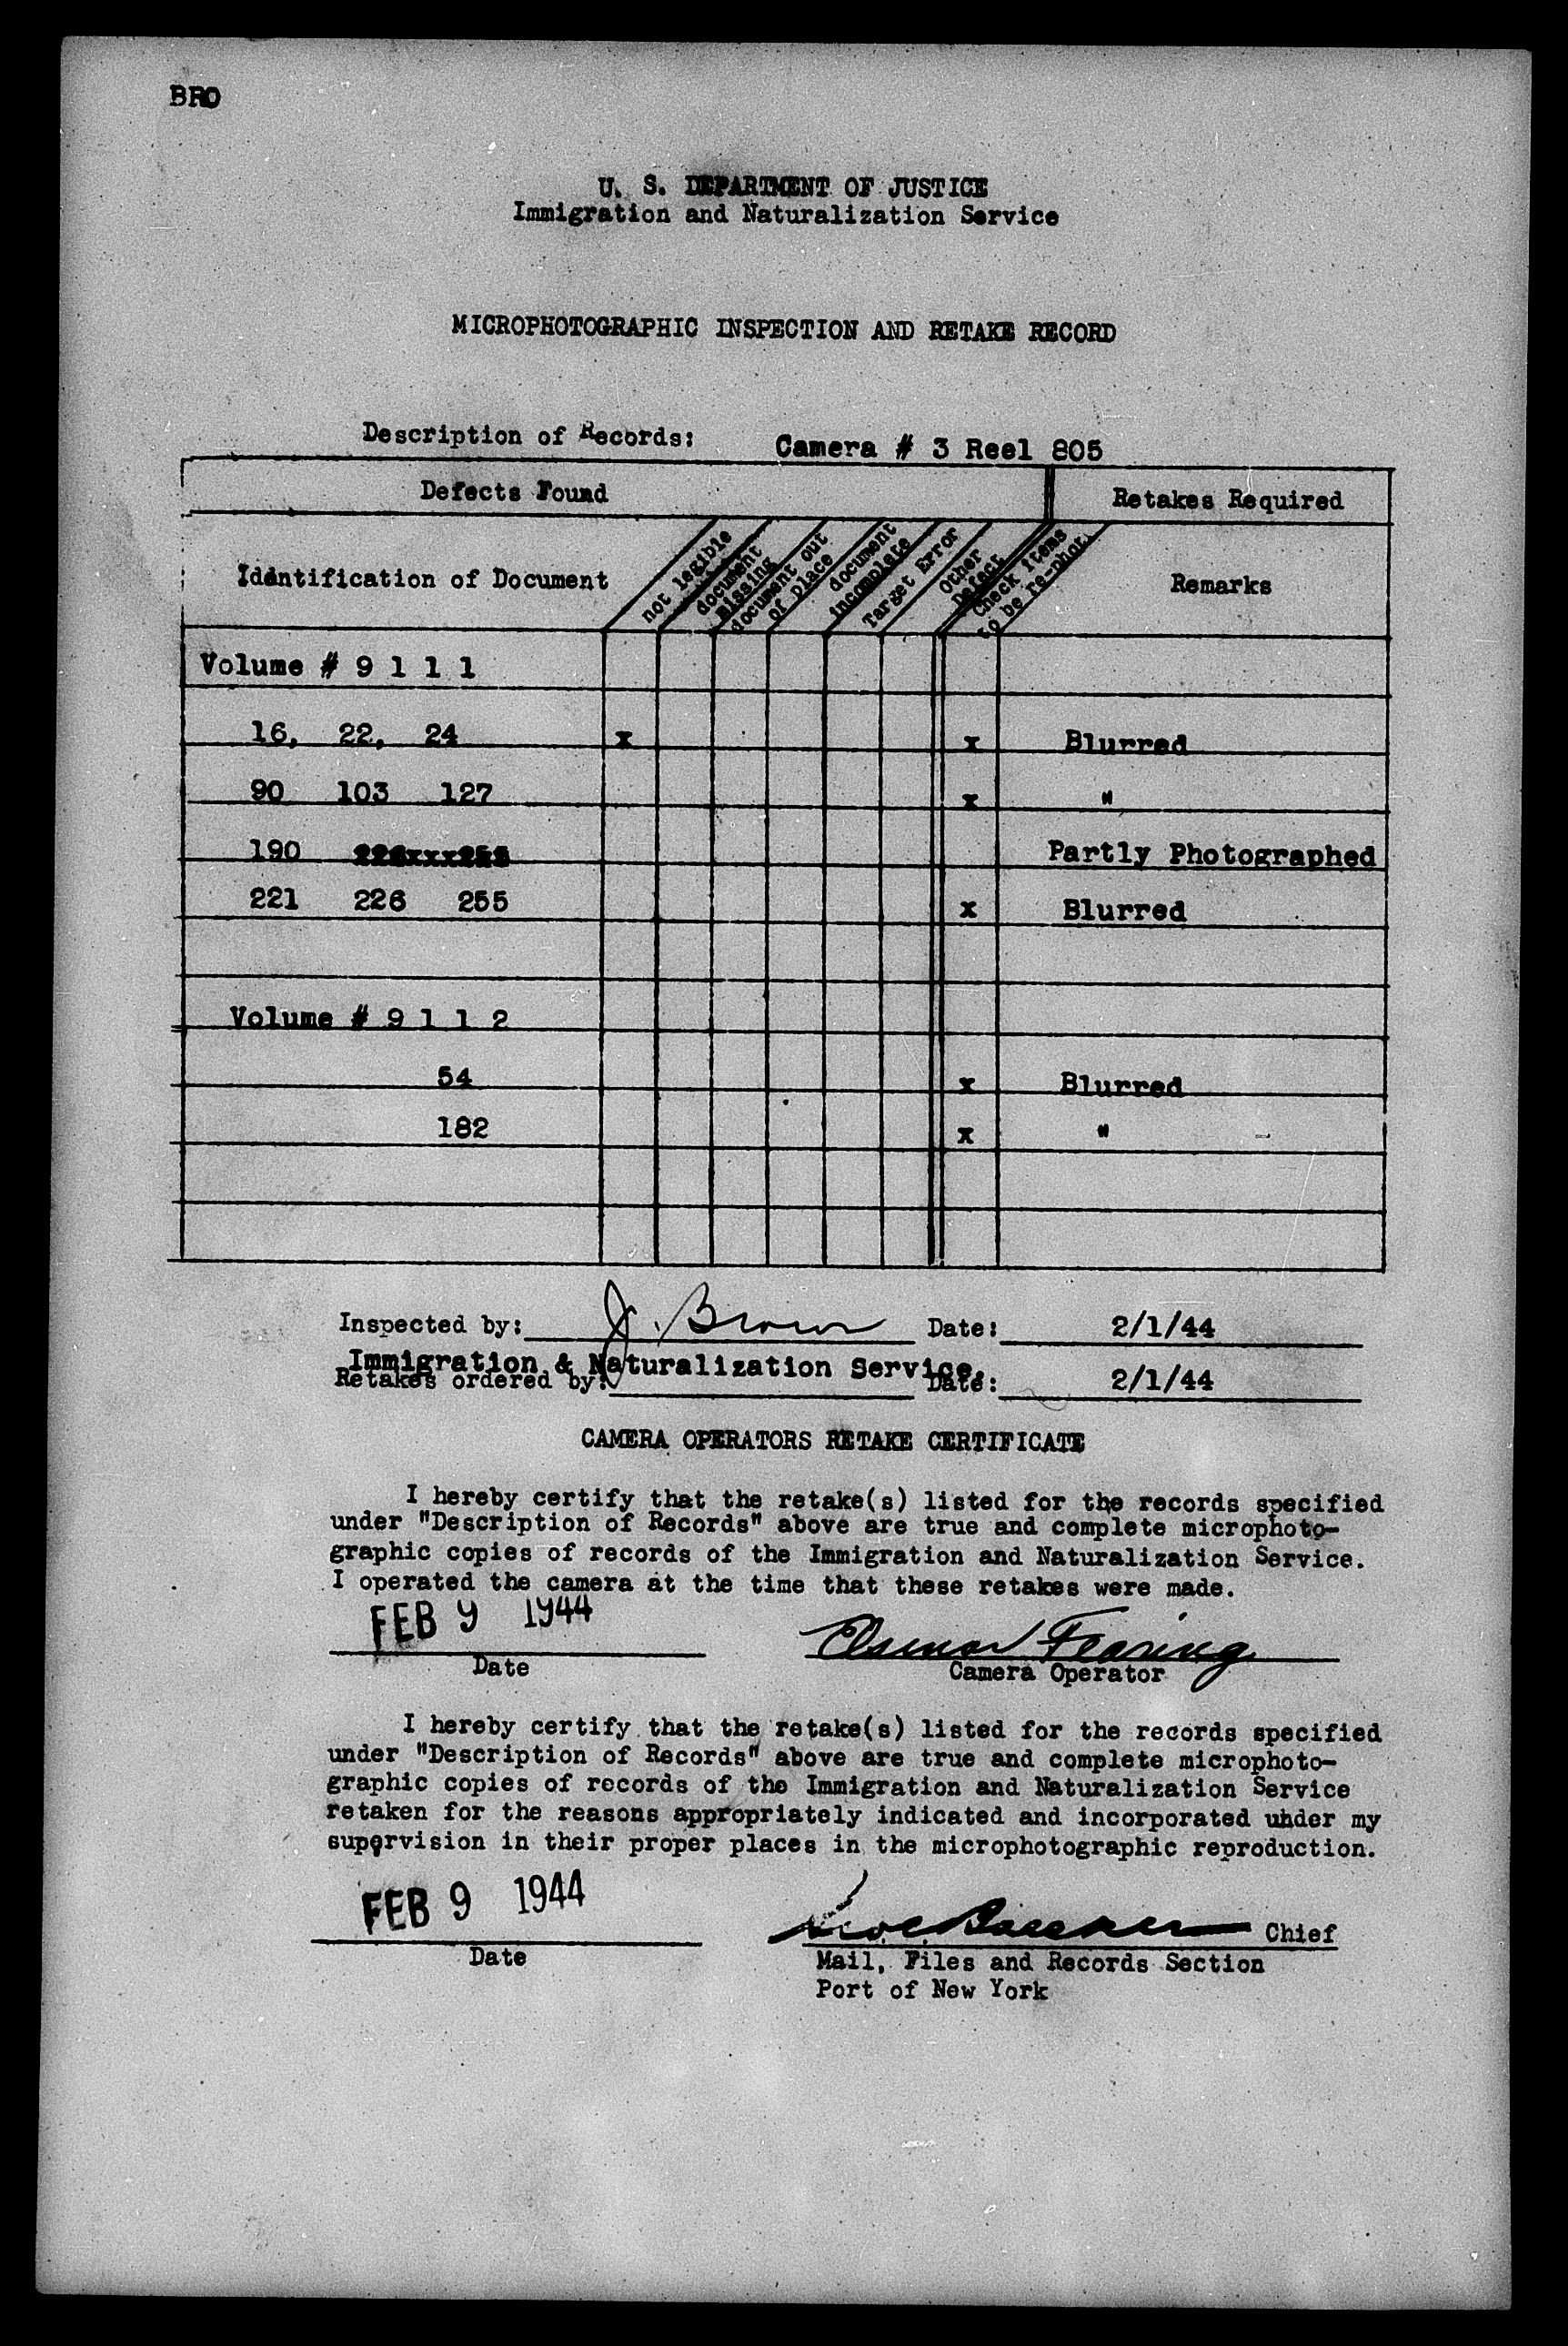 BRO
U. S. DEPARTMENT OF JUSTICE
Immigration and Naturalization Service
MICROPHOTOGRAPHIC INSPECTION AND RETAKE RECORD
Description of Records: Camera # 3 Reel 805
Defects Found Retakes Required
Identification of Document
not legible
document missing
document out of place
document incomplete
Target Error
Other Defect
Check items to be re-phot.
Remarks
Volume # 9 1 1 1
16, 22, 24 x x Blurred
90 103 127 x "
190 Partly Photographed
221 226 255 x Blurred
Volume # 9 1 1 2
54 x Blurred
182 x "
Inspected by: J. Brown Date: 2/1/44
Immigration & Naturalization Service.
Retakes ordered by: Date: 2/1/44
CAMERA OPERATORS RETAKE CERTIFICATE
I hereby certify that the retake(s) listed for the records specified
under "Description of Records" above are true and complete microphoto-
graphic copies of records of the Immigration and Naturalization Service.
I operated the camera at the time that these retakes were made.
FEB 9 1944 Fearing
Date Camera Operator
I hereby certify that the retake(s) listed for the records specified
under "Description of Records" above are true and complete microphoto-
graphic copies of records of the Immigration and Naturalization Service
retaken for the reasons appropriately indicated and incorporated under my
supervision in their proper places in the microphotographic reproduction.
FEB 9 1944 Chief
Date Mail, Files and Records Section
Port of New York